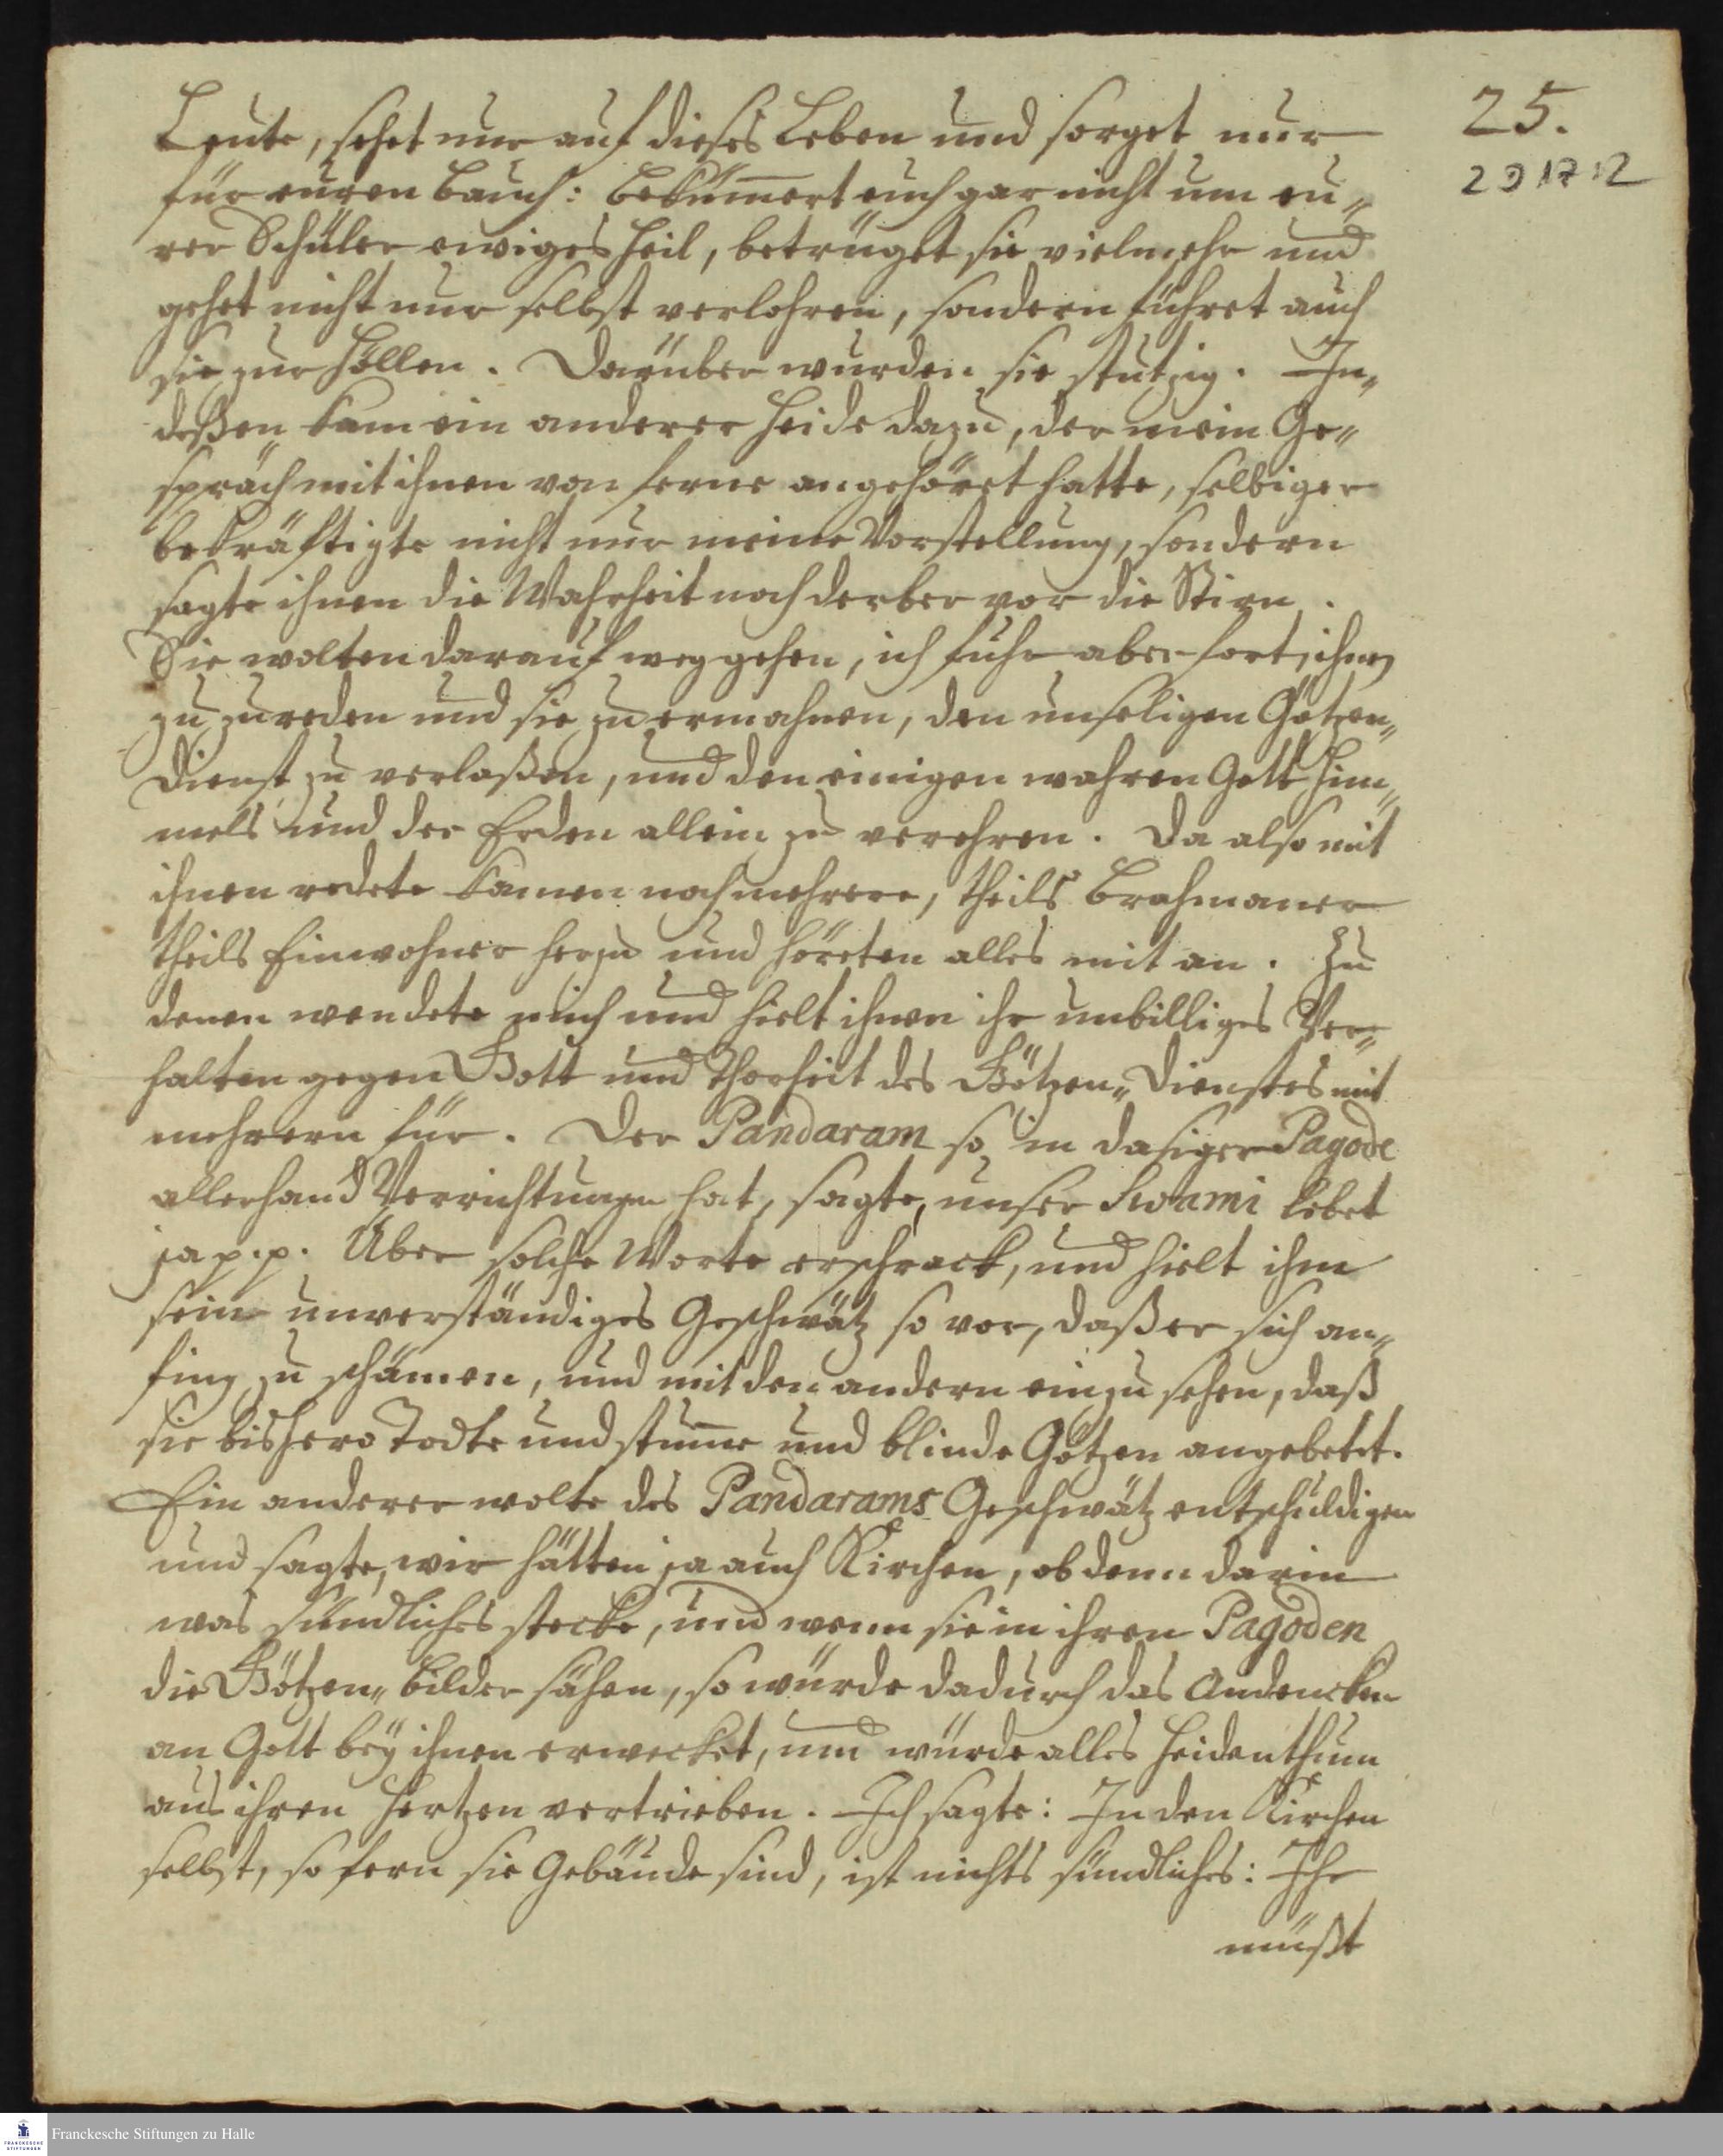 25.
2 D 17 12
Leute, sehet nur auf dieses Leben und sorget nur
für euren Bauch: bekümmert euch gar nicht um eu„
rer Schüler ewiges Heil, betrüget sie vielmehr und
gehet nicht nur selbst verlohren, sondern führet auch
sie zur Höllen. Darüber wurden sie stutzig. In„
deßen kam ein anderer Heide dazu, der mein Ge„
spräch mit ihnen von ferne angehöret hatte, selbiger
bekräftigte nicht nur meine Vorstellung, sondern
sagte ihnen die Wahrheit noch derber vor die Stirn.
Sie wolten darauf weggehen, ich fuhr aber fort, ihnen
zu zureden und sie zu ermahnen, den unseligen Götzen„
dienst zu verlaßen, und den einigen wahren Gott Him„
mels und der Erden allein zu verehren. Da also mit
ihnen redete kamen noch mehrere, theils Brahmaner
theils Einwohner herzu und höreten alles mit an. Zu
denen wendete mich und hielt ihnen ihr unbilliges Ver„
halten gegen Gott und Thorheit des Götzen„Dienstes mit
mehrern für. Der Pandaram so in dasiger Pagode
allerhand Verrichtungen hat, sagte, unser Swami lebet
ja p.p. Über solche Worte erschrack, und hielt ihm
sein unverständiges Geschwätz so vor, daß er sich an„
fing zu schämen, und mit den andern einzusehen, daß
sie bishero Todte und stumme und blinde Götzen angebetet.
Ein anderer wolte des Pandarams Geschwätz entschuldigen
und sagte, wir hätten ja auch Kirchen, ob denn darin
was sündliches stecke, und wenn sie in ihren Pagoden
die Götzen„bilder sähen, so würde dadurch das Andencken
an Gott beÿ ihnen erwecket, und würde alles Heidenthum
aus ihren Hertzen vertrieben. Ich sagte: In den Kirchen
selbst, so fern sie Gebäude sind, ist nichts sündliches: Ihr
müßt
FRANCKESCHE STIFTUNGEN
Franckesche Stiftungen zu Halle